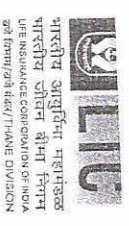 LIC
भारतीय आयुर्विमा महामंडळ
भारतीय जीवन बीमा निगम
LIFE INSURANCE CORPORATION OF INDIA
ठाणे विभाग/ठाणे मंडल / THANE DIVISION